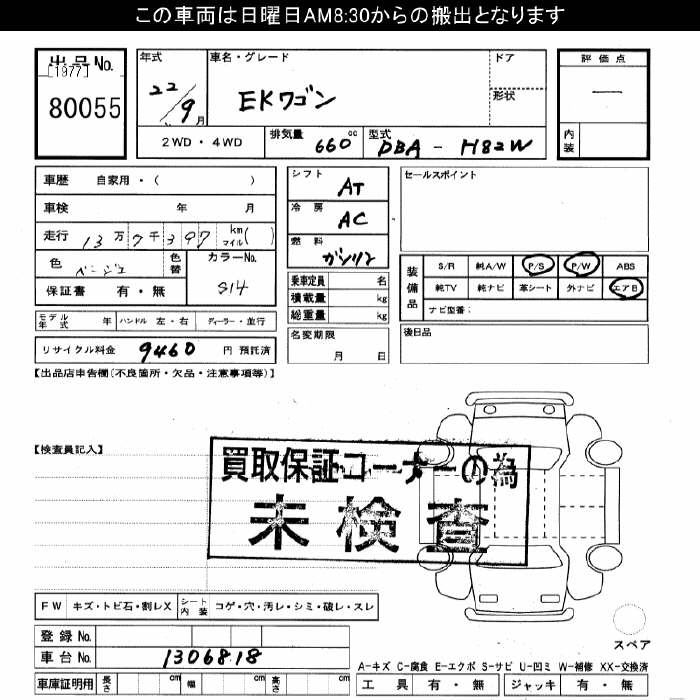 この車両は日曜日AM8:30からの搬出となります
出品No.
[1977]
80055
年式 22/9月
車名・グレード EKワゴン
ドア
形状
評価点 —
内装
2WD・4WD
排気量 660cc
型式 DBA-H82W
車歴 自家用・(　　)
車検 年 月
走行 13万7千397 km マイル(　)
色 ベージュ
色替
カラーNo. S14
保証書 有・無
シフト AT
冷房 AC
燃料 ガソリン
乗車定員 名
積載量 kg
総重量 kg
セールスポイント
装備品
S/R 純A/W P/S P/W ABS
純TV 純ナビ 革シート 外ナビ エアB
ナビ型番:
モデル年式 年 ハンドル 左・右 ディーラー・並行
名変期限 月 日
後日品
リサイクル料金 9460 円 預託済
【出品店申告欄(不良箇所・欠品・注意事項等)】
【検査員記入】
買取保証コーナーの為
未検査
FW キズ・トビ石・割レX
シート内装 コゲ・穴・汚レ・シミ・破レ・スレ
スペア
登録No.
車台No. 1306818
A-キズ C-腐食 E-エクボ S-サビ U-凹ミ W-補修 XX-交換済
車庫証明用 長さ cm 幅 cm 高さ cm
工具 有・無 ジャッキ 有・無